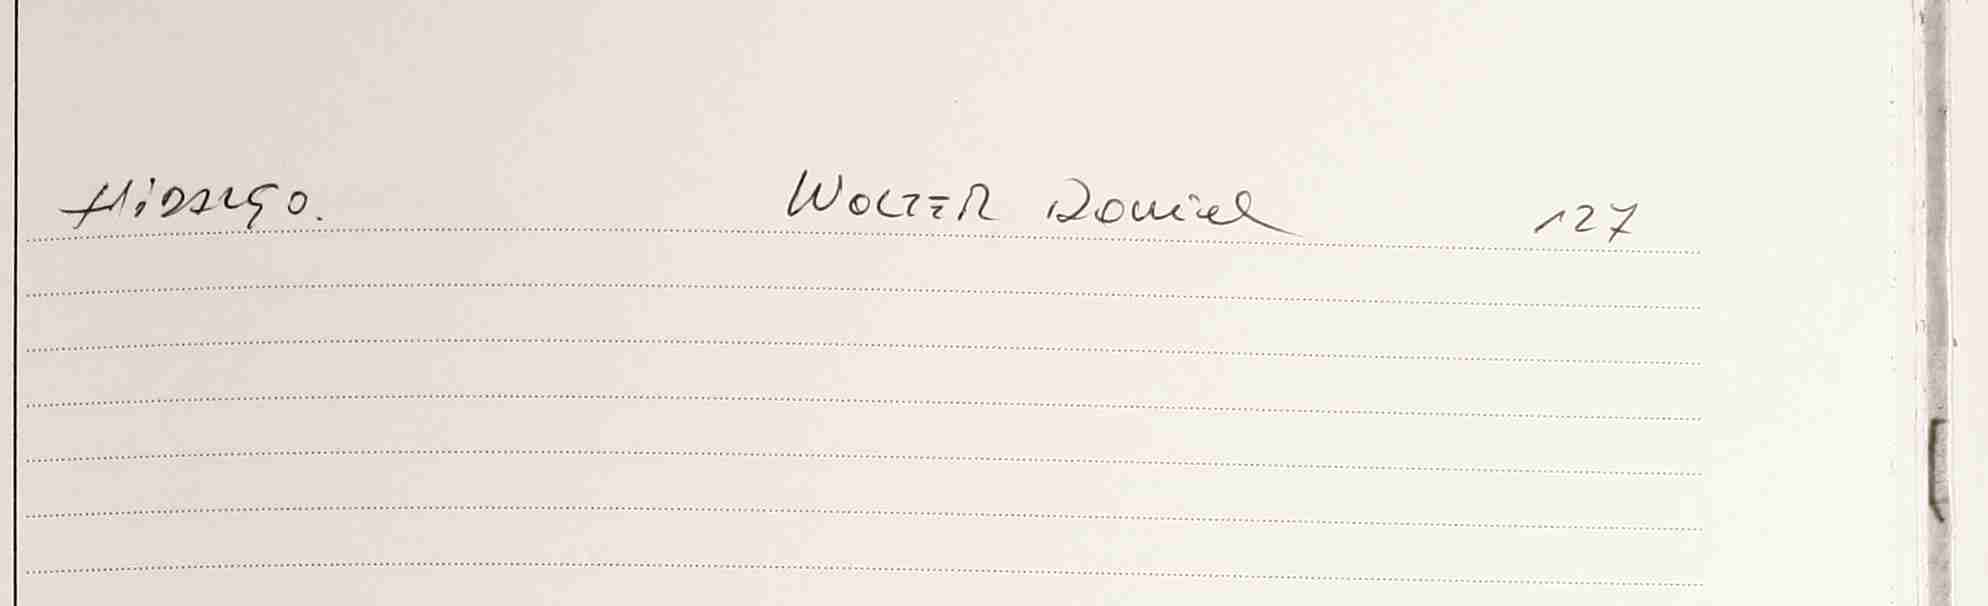 Hidalgo. WOLTER Daniel 127